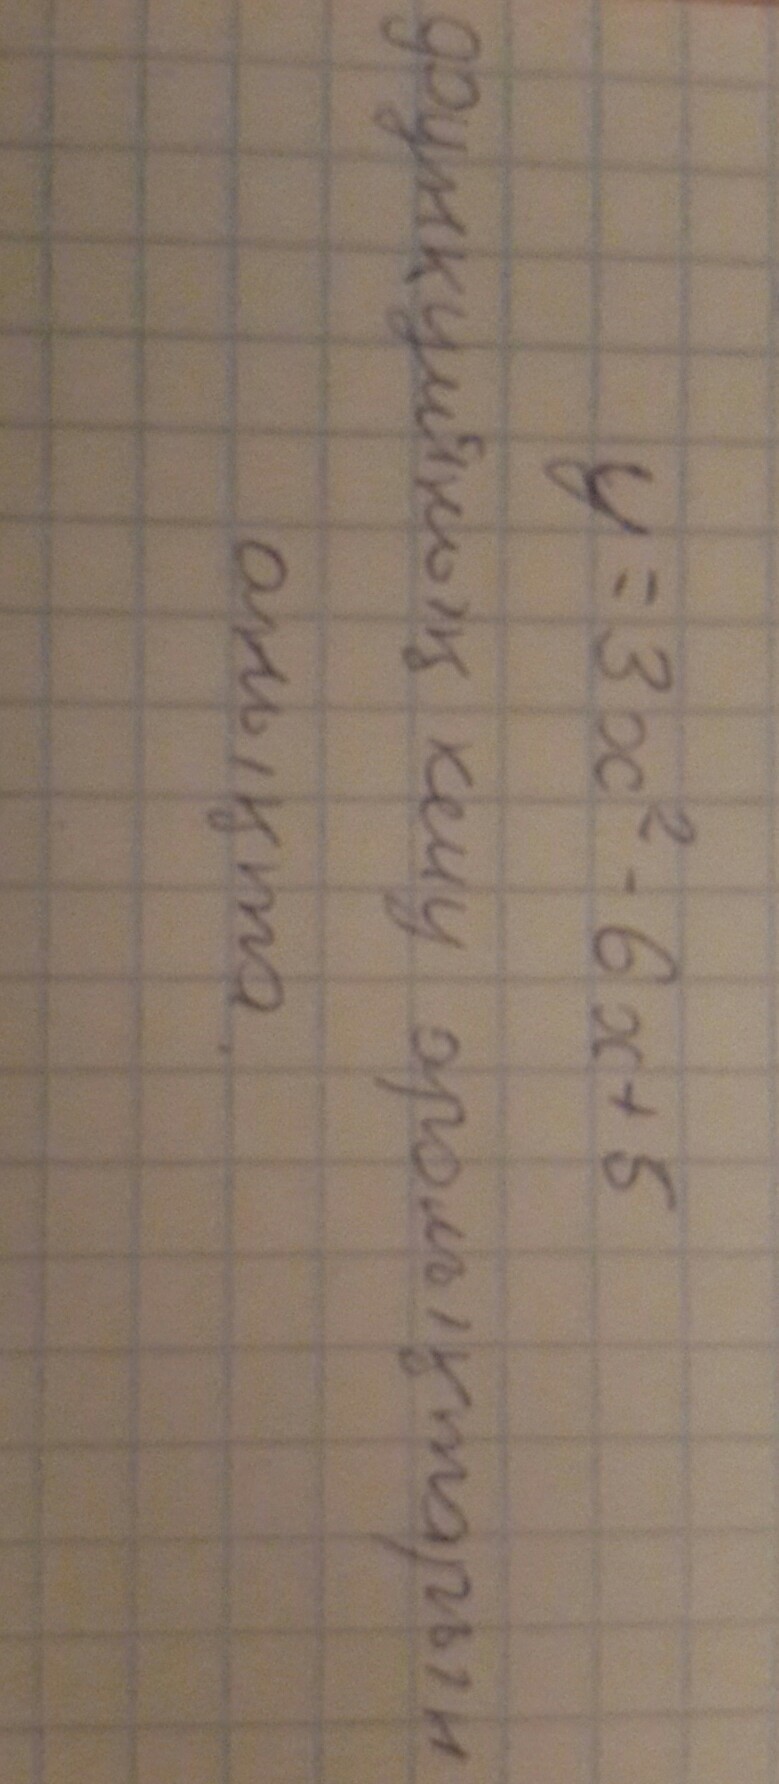 y = 3x² - 6x + 5
функцияның кему аралықтарын
анықта.